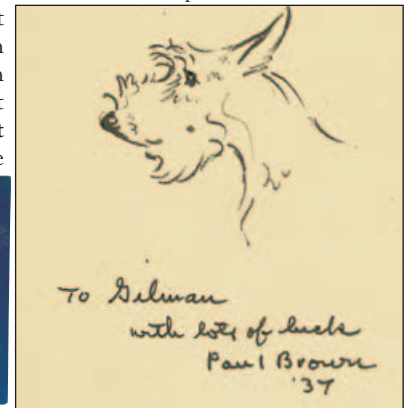 To Gilman
with lots of luck
Paul Brown
'37